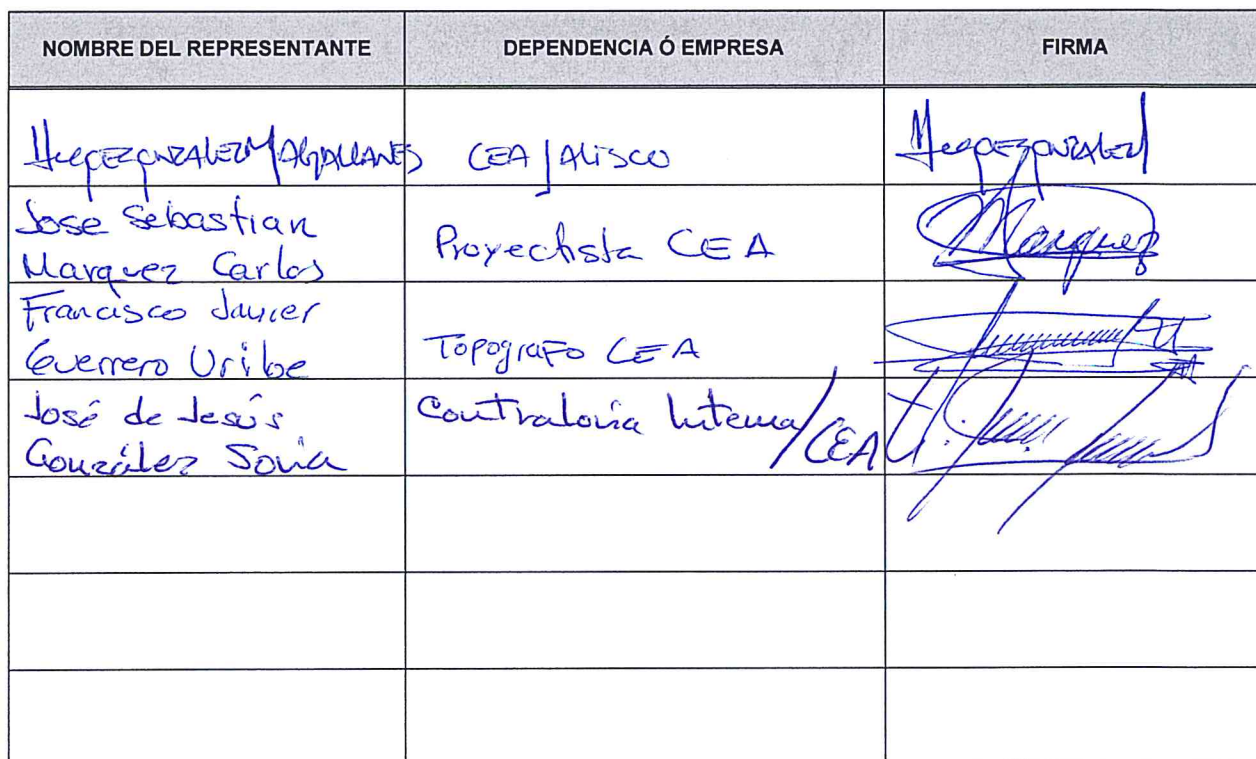 NOMBRE DEL REPRESENTANTE DEPENDENCIA Ó EMPRESA FIRMA
GONZALEZ MAGALLANES CEA JALISCO
Jose Sebastian
Marquez Carlos Proyectista CEA Marquez
Francisco Javier
Guerrero Uribe Topografo CEA
José de Jesús Contraloria Interna/CEA
González Soria